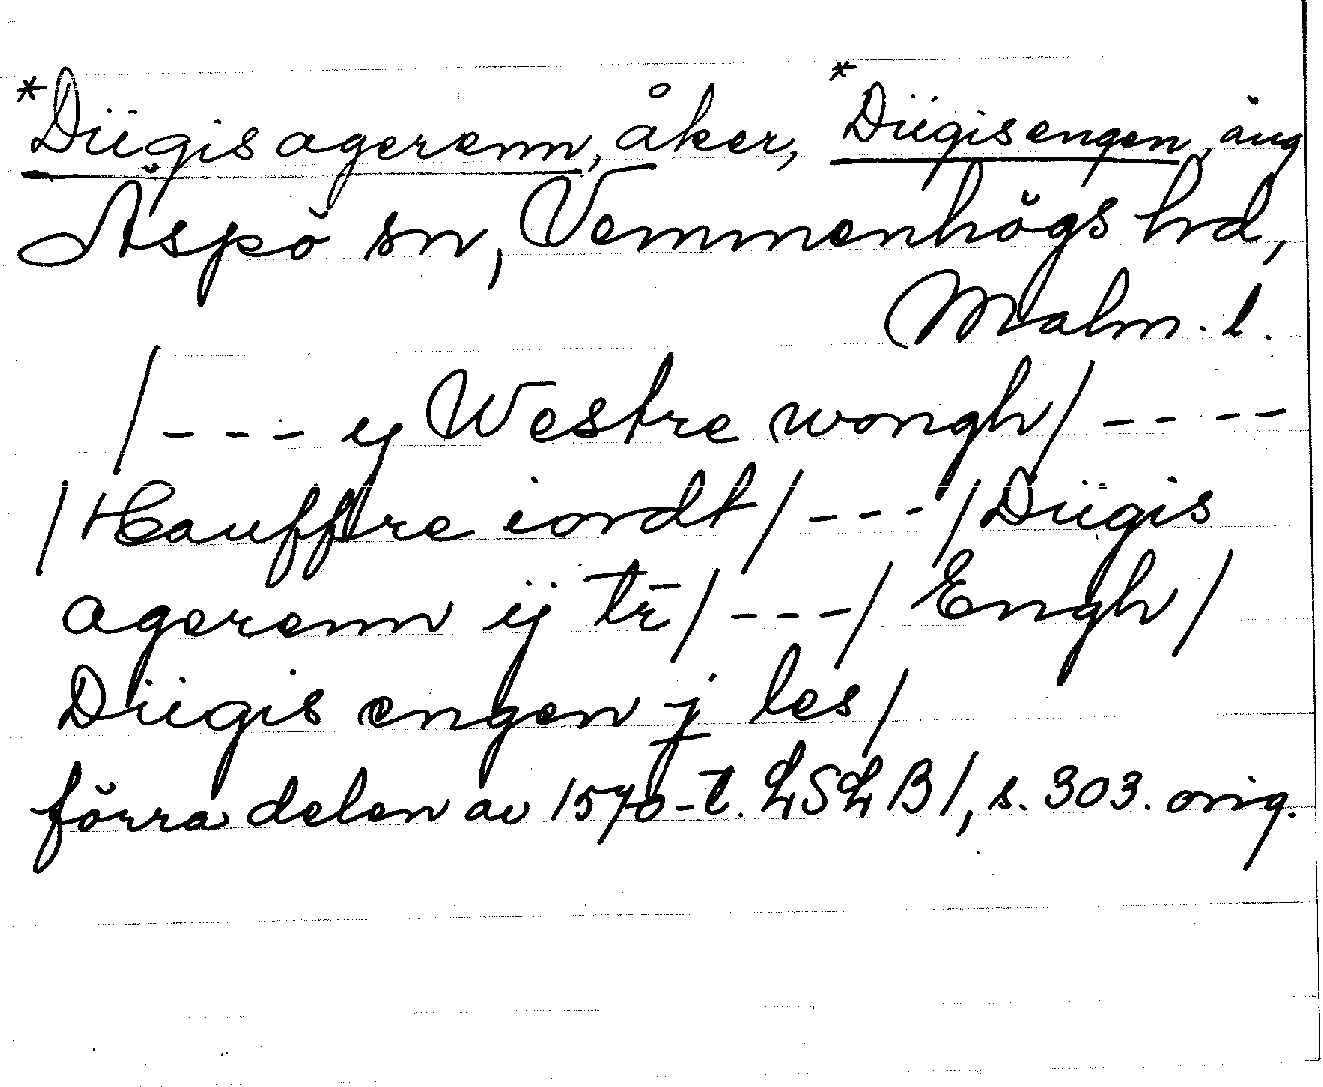 *Diigis agerenn, åker, *Diigis engen, äng
Äspö sn, Vemmenhögs hd,
Malm. l.
/--- ij Westre wongh/----
/Hauffre iordt/---/Diigis
agerenn ij tr̄/---/Engh/
Diigis engen j les/
förra delen av 1570-t. LSLB/, s. 303. orig.